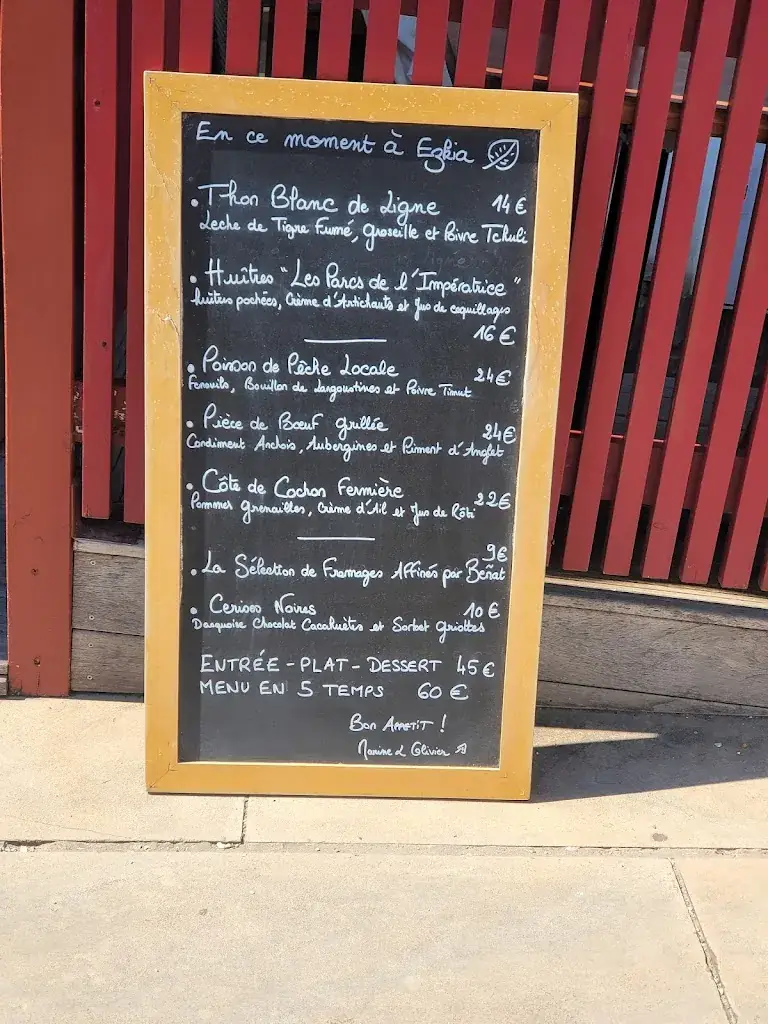 En ce moment à Ezkia
• Thon Blanc de Ligne 14€
Leche de Tigre Fumé, Groseille et Poivre Tchuli
• Huîtres "Les Parcs de l'Impératrice"
Huîtres pochées, Crème d'Artichauts et Jus de coquillages
16€
• Poisson de Pêche Locale 24€
Fenouils, Bouillon de Langoustines et Poivre Timut
• Pièce de Bœuf grillée 24€
Condiment Anchois, Aubergines et Piment d'Anglet
• Côte de Cochon Fermière 22€
Pommes Grenailles, Crème d'Ail et Jus de Rôti
9€
• La Sélection de Fromages Affinés par Beñat
• Cerises Noires 10€
Dacquoise Chocolat Cacahuètes et Sorbet Griottes
ENTRÉE - PLAT - DESSERT 45€
MENU EN 5 TEMPS 60€
Bon Appetit !
Marine & Olivier